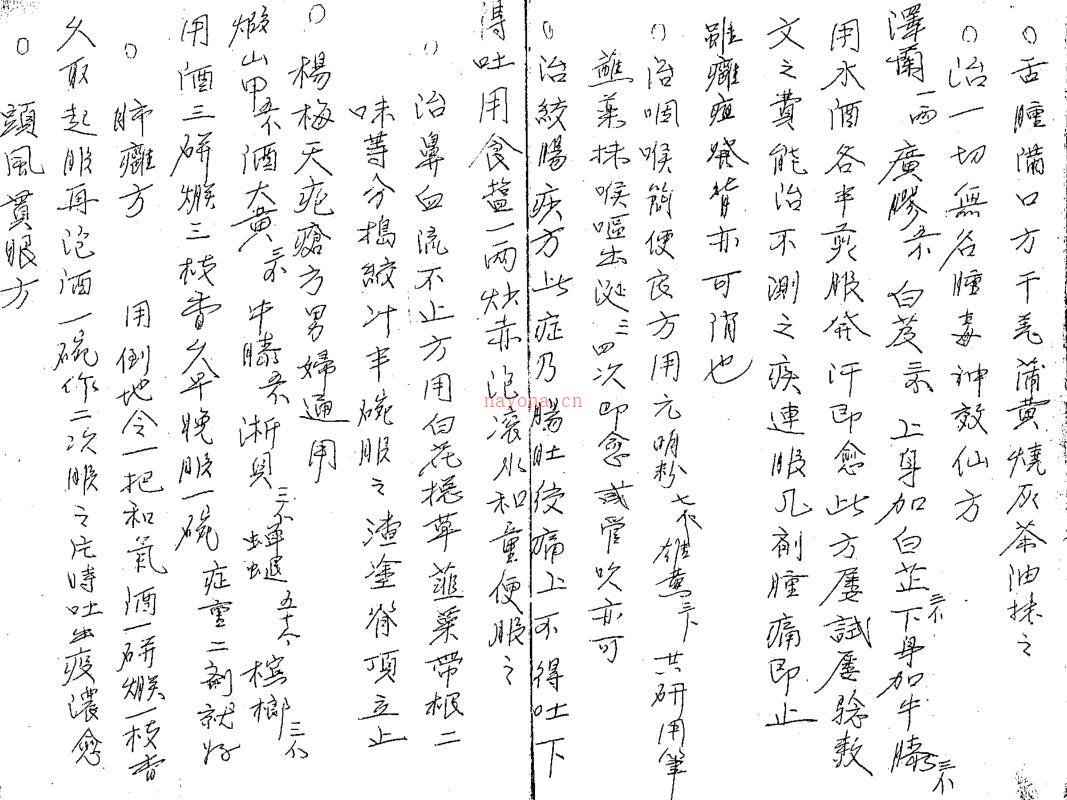 ○舌腫滿口方干羌蒲黃燒灰茶油抹之
○治一切無名腫毒神效仙方
澤蘭一両廣膠白芨上身加白芷三下身加牛膝三
用水酒各半煎服発汗即愈此方屢試屢驗数
文之費能治不測之疾連服几劑腫痛即止
雖癰疽發背亦可消也
○治咽喉簡便良方用元明粉七雄黄三共研用筆
蘸藥抹喉嘔出涎三四次即愈或管吹亦可
○治絞腸痧方此症乃腸肚絞痛上不得吐下
得吐用食盐一两炒赤泡滚水和童便服之
○治鼻血流不止方用白花草韮菜带根二
味等分搗絞汁半碗服之渣塗脊頂立止
○楊梅天疱瘡方男婦通用
煅山甲酒大黃牛膝浙貝三蝉退五十个槟榔三
用酒三砰燉三枝香久早晚服一碗症重二剤就好
○肺癰方用倒地令一把和氣酒一砰燉一枝香
久取起服再泡酒一碗作二次服之后時吐出疫濃愈
○頭風貫眼方
nayona.cn